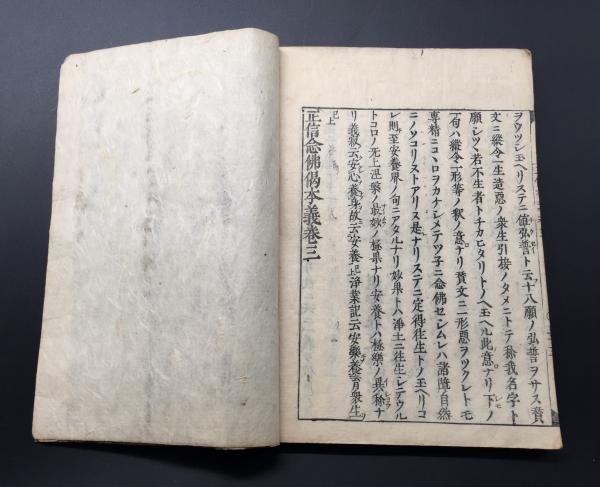 ヲウツシ玉ヘリステニ値弘誓ト云十八願ノ弘誓ヲサス賛
文ニ縦令一生造悪ノ衆生引接ノタメニトテ称我名字ト
願シツヽ若不生者トチカヒタリトノヘ玉ヘル此意ナリ下ノ
一句ハ縦令一形等ノ釈ノ意ナリ賛文ニ一形悪ヲツクレトモ
専精ニコヽロヲカケシメテツ子ニ念佛セシムレハ諸障自然
ニノソコリヌトアリ是ナリステニ定得往生トノ玉ヘリコ
レ則至安養界ノ句ニアタルナリ妙果トハ浄土ニ往生シテウル
トコロノ无上涅槃ノ最妙ノ極果ナリ安養トハ極樂ノ異称ナ
リ義寂云安心養身故云安養已上浄業記云安樂養育衆生
已上
正信念佛偈本義巻三